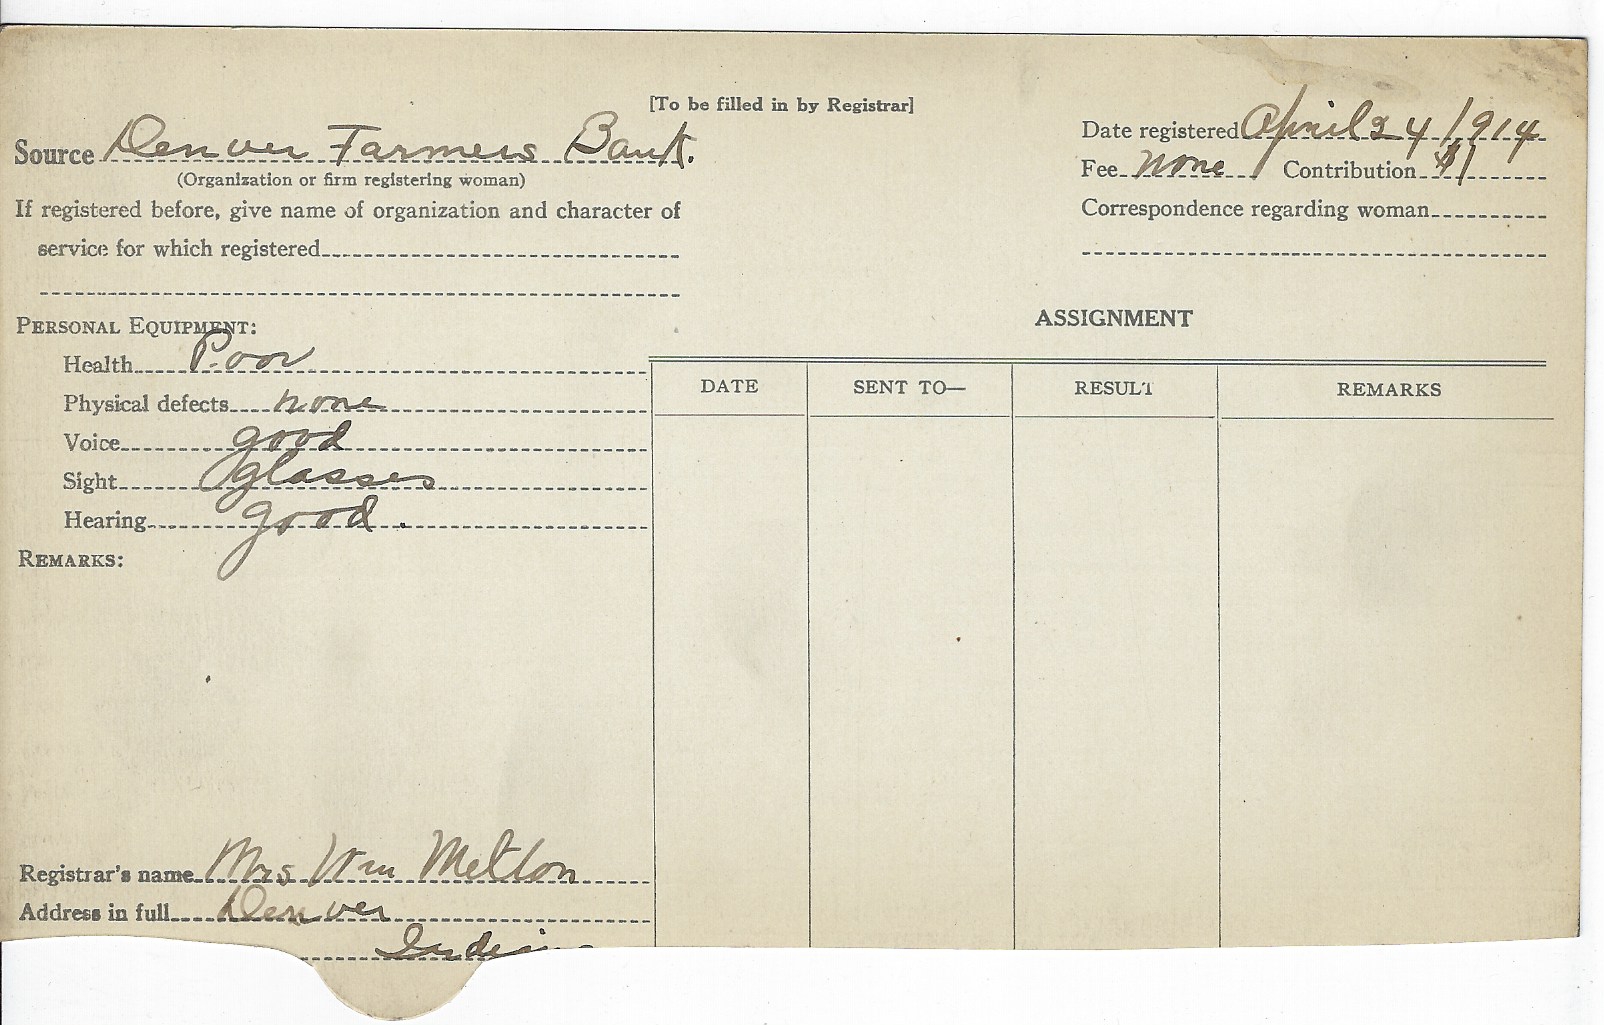 [To be filled in by Registrar]
Source Denver Farmers Bank.
(Organization or firm registering woman)
If registered before, give name of organization and character of
service for which registered
Date registered April 24 1914
Fee none Contribution $1
Correspondence regarding woman
PERSONAL EQUIPMENT:
Health Poor
Physical defects none
Voice good
Sight glasses
Hearing good.
REMARKS:
ASSIGNMENT
DATE SENT TO— RESULT REMARKS
Registrar's name Mrs Wm Melton
Address in full Denver